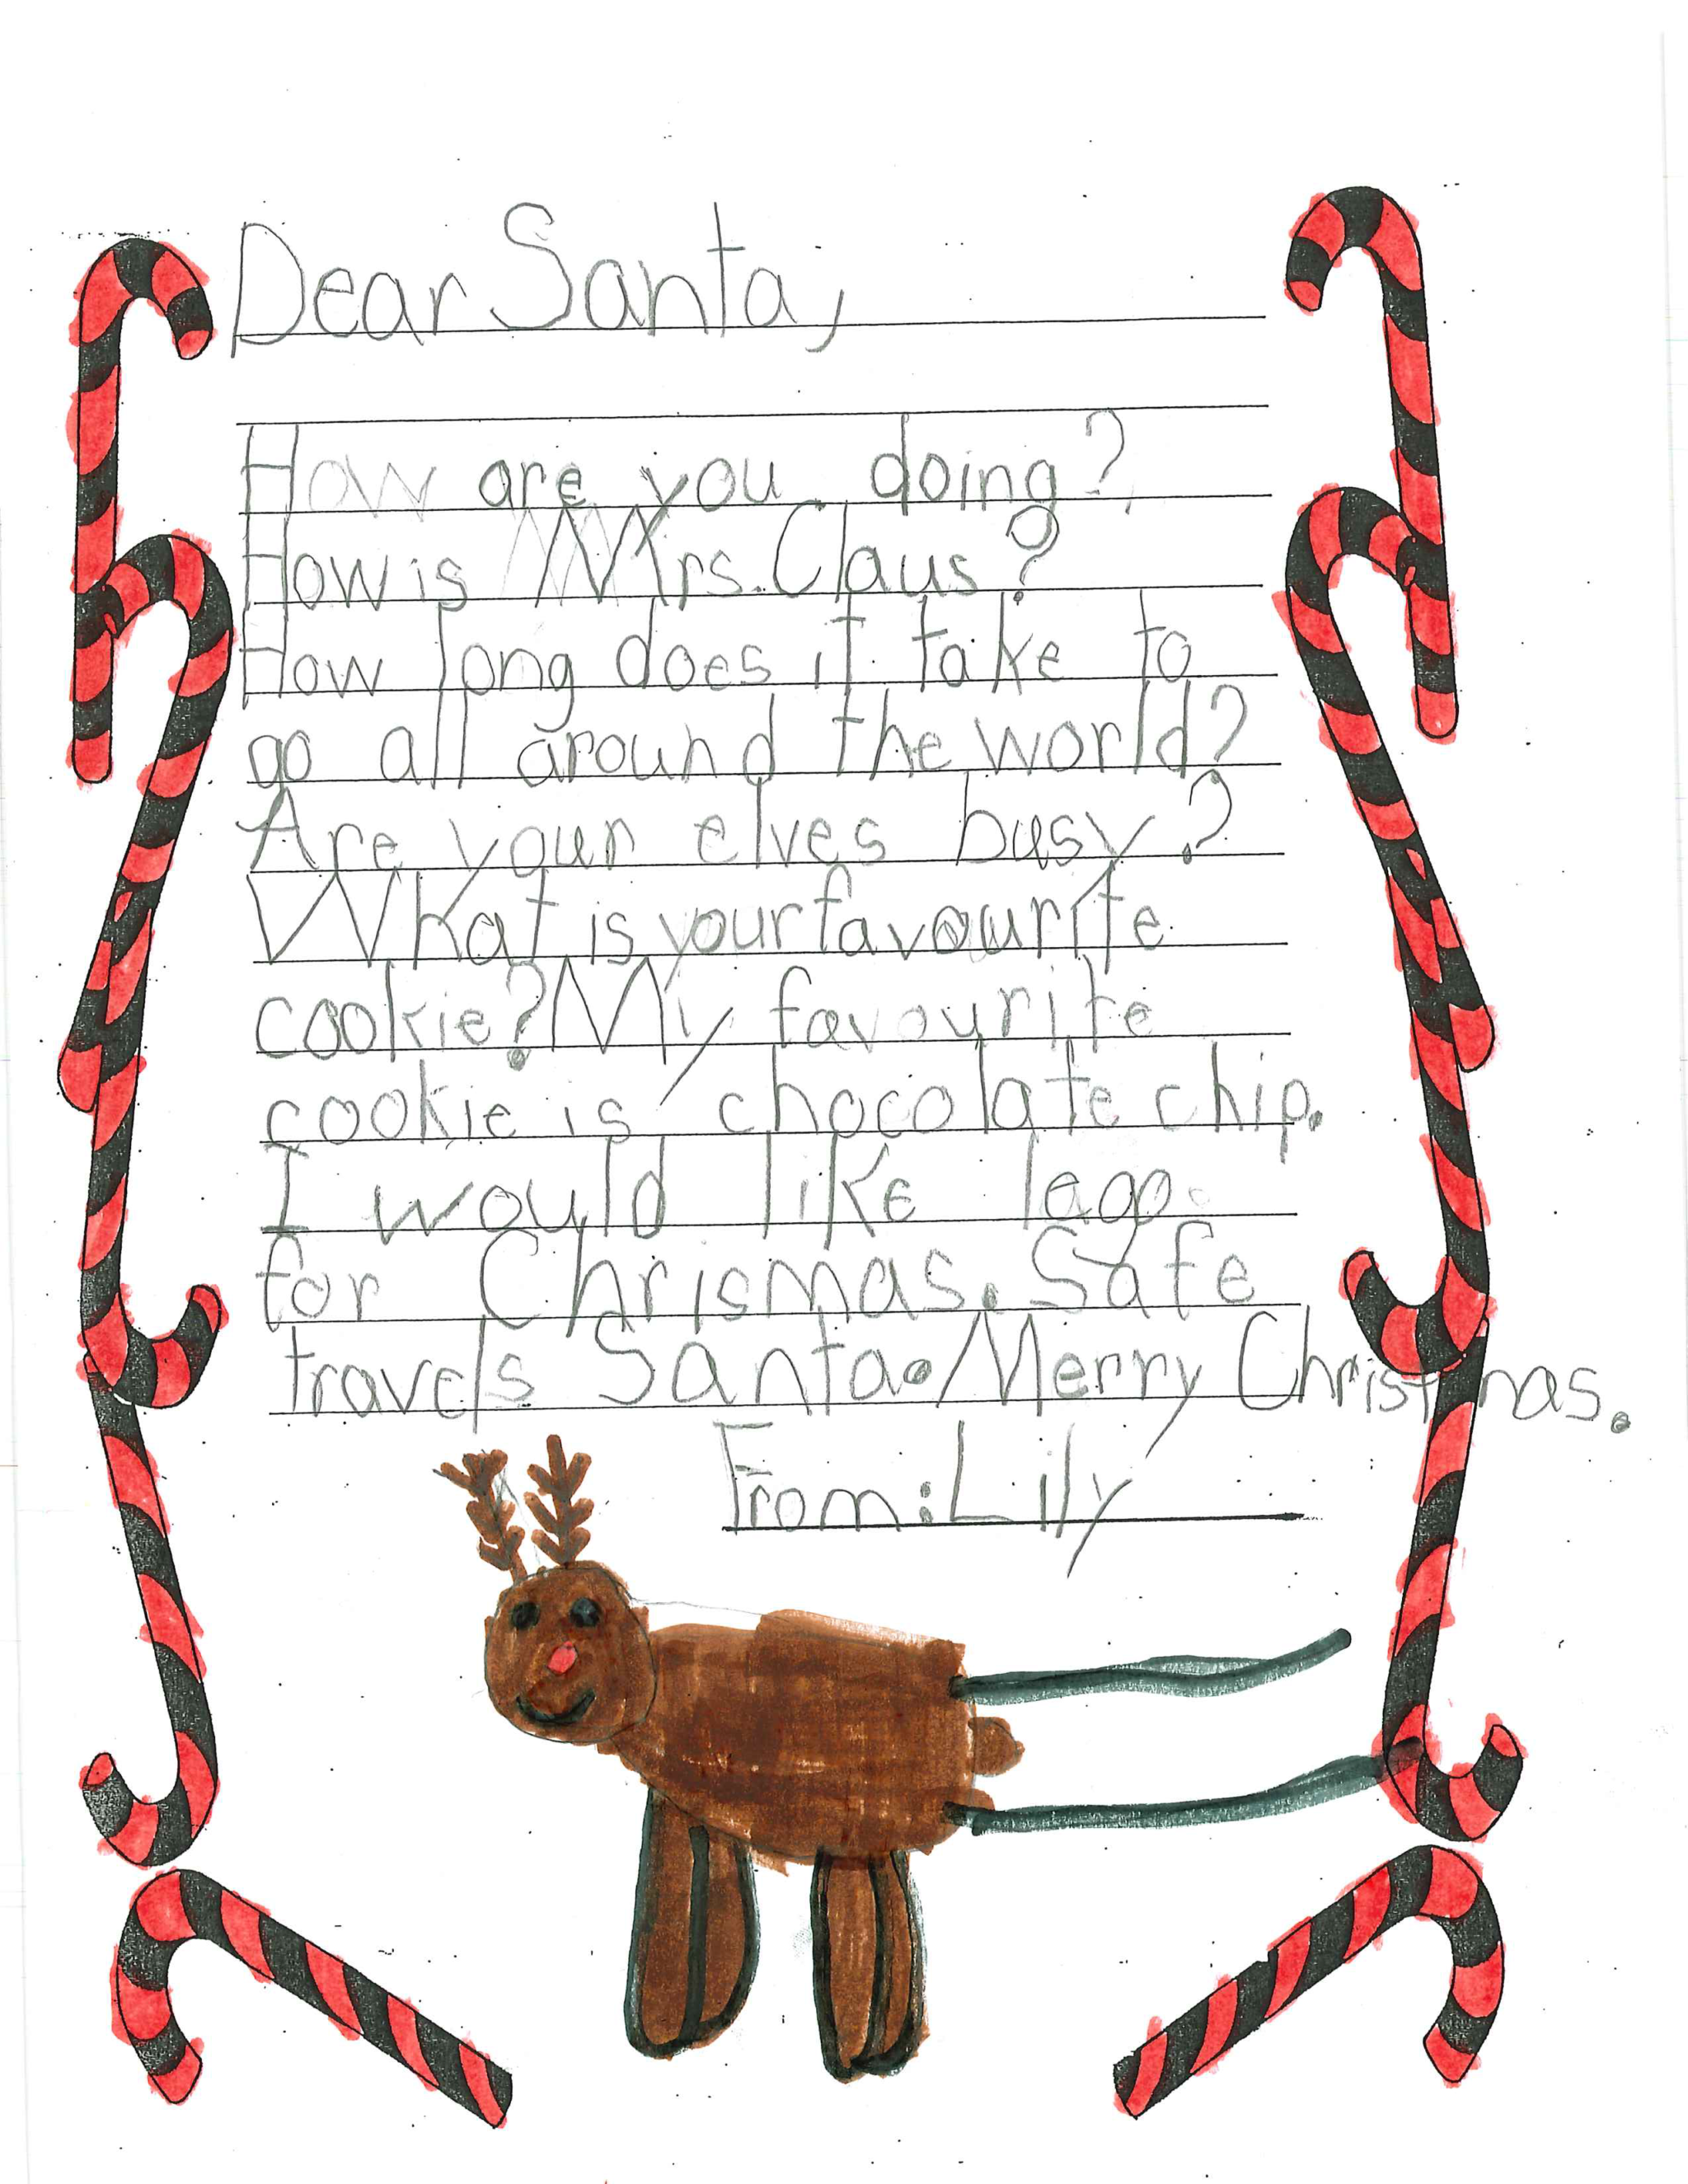 Dear Santa,
How are you doing?
How is Mrs. Claus?
How long does it take to
go all around the world?
Are your elves busy?
What is your favourite
cookie? My favourite
cookie is chocolate chip.
I would like lego
for Chrismas. Safe
travels Santa. Merry Christmas.
From: Lily